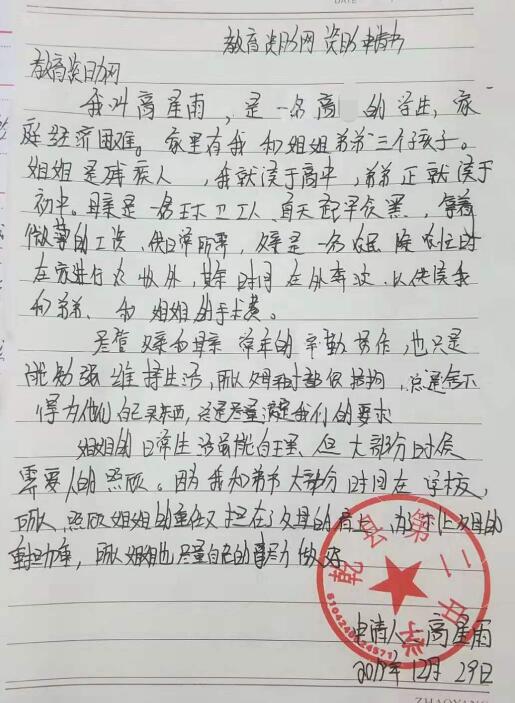 教育资助网 资助申请书
教育资助网
我叫高星雨，是一名高 的学生，家
庭经济困难。家里有我和姐姐弟弟三个孩子。
姐姐是残疾人，我就读于高中，弟弟正就读于
初中。母亲是一名环卫工人，每天起早贪黑，拿着
微薄的工资，供日常所需，父亲是一名农民，除农忙时
在家进行农收外，其余时间在外奔波，以供读我
和弟弟、和姐姐的手术费。
尽管父亲和母亲常年的辛勤劳作，也只是
能勉强维持生活，所以父母平时都很拮拘，总是舍不
得为他们自己买东西，总是尽量满足我们的要求
姐姐的日常生活虽能自理，但大部分时候
需要人的照顾。因为我和弟弟大部分时间在学校，
所以照顾姐姐的重任又担在了父母的肩上，为了 父母的
，所以姐姐也尽量自己的 力做好
乾县第二中学
6104240024571
申请人：高星雨
2019年12月29日
ZHAOYANG
DATE